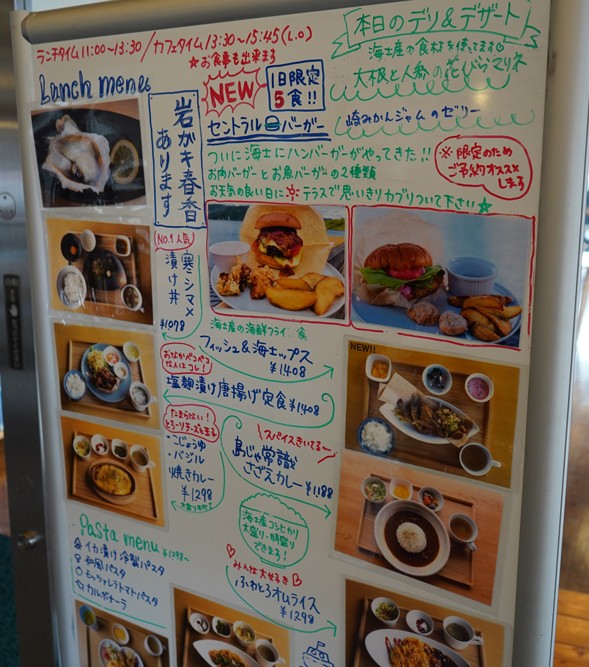 ランチタイム 11:00～13:30 / カフェタイム 13:30～15:45 (L.O)
☆お食事も出来ます
Lunch menu
本日のデリ&デザート
海士産の食材を使ってます
大根と人参の花びらマリネ
崎みかんジャムのゼリー
岩がキ春香
あります
NEW
1日限定
5食!!
セントラルバーガー
ついに海士にハンバーガーがやってきた!!
お肉バーガーとお魚バーガーの2種類
お天気の良い日に テラスで思いきりカブリついて下さい☆
※限定のため
ご予約オススメ
します
NO.1 人気
寒シマメ
漬け丼
¥1078
海士産の海鮮フライ
フィッシュ&海士ップス
¥1408
おなかペコペコ
な人はコレ!
塩麹漬け唐揚げ定食 ¥1408
NEW!!
とろ~りチーズと玉子
・こじょうゆ
・バジル
焼きカレー
¥1298
スパイスきいてる~
島じゃ常識
さざえカレー ¥1188
海士産コシヒカリ
大盛り・特盛り
できます!
Pasta menu ¥1298~
イカ漬け冷製パスタ
和風パスタ
モッツァレラトマトパスタ
カルボナーラ
みんな大好き
ふわとろオムライス
¥1298